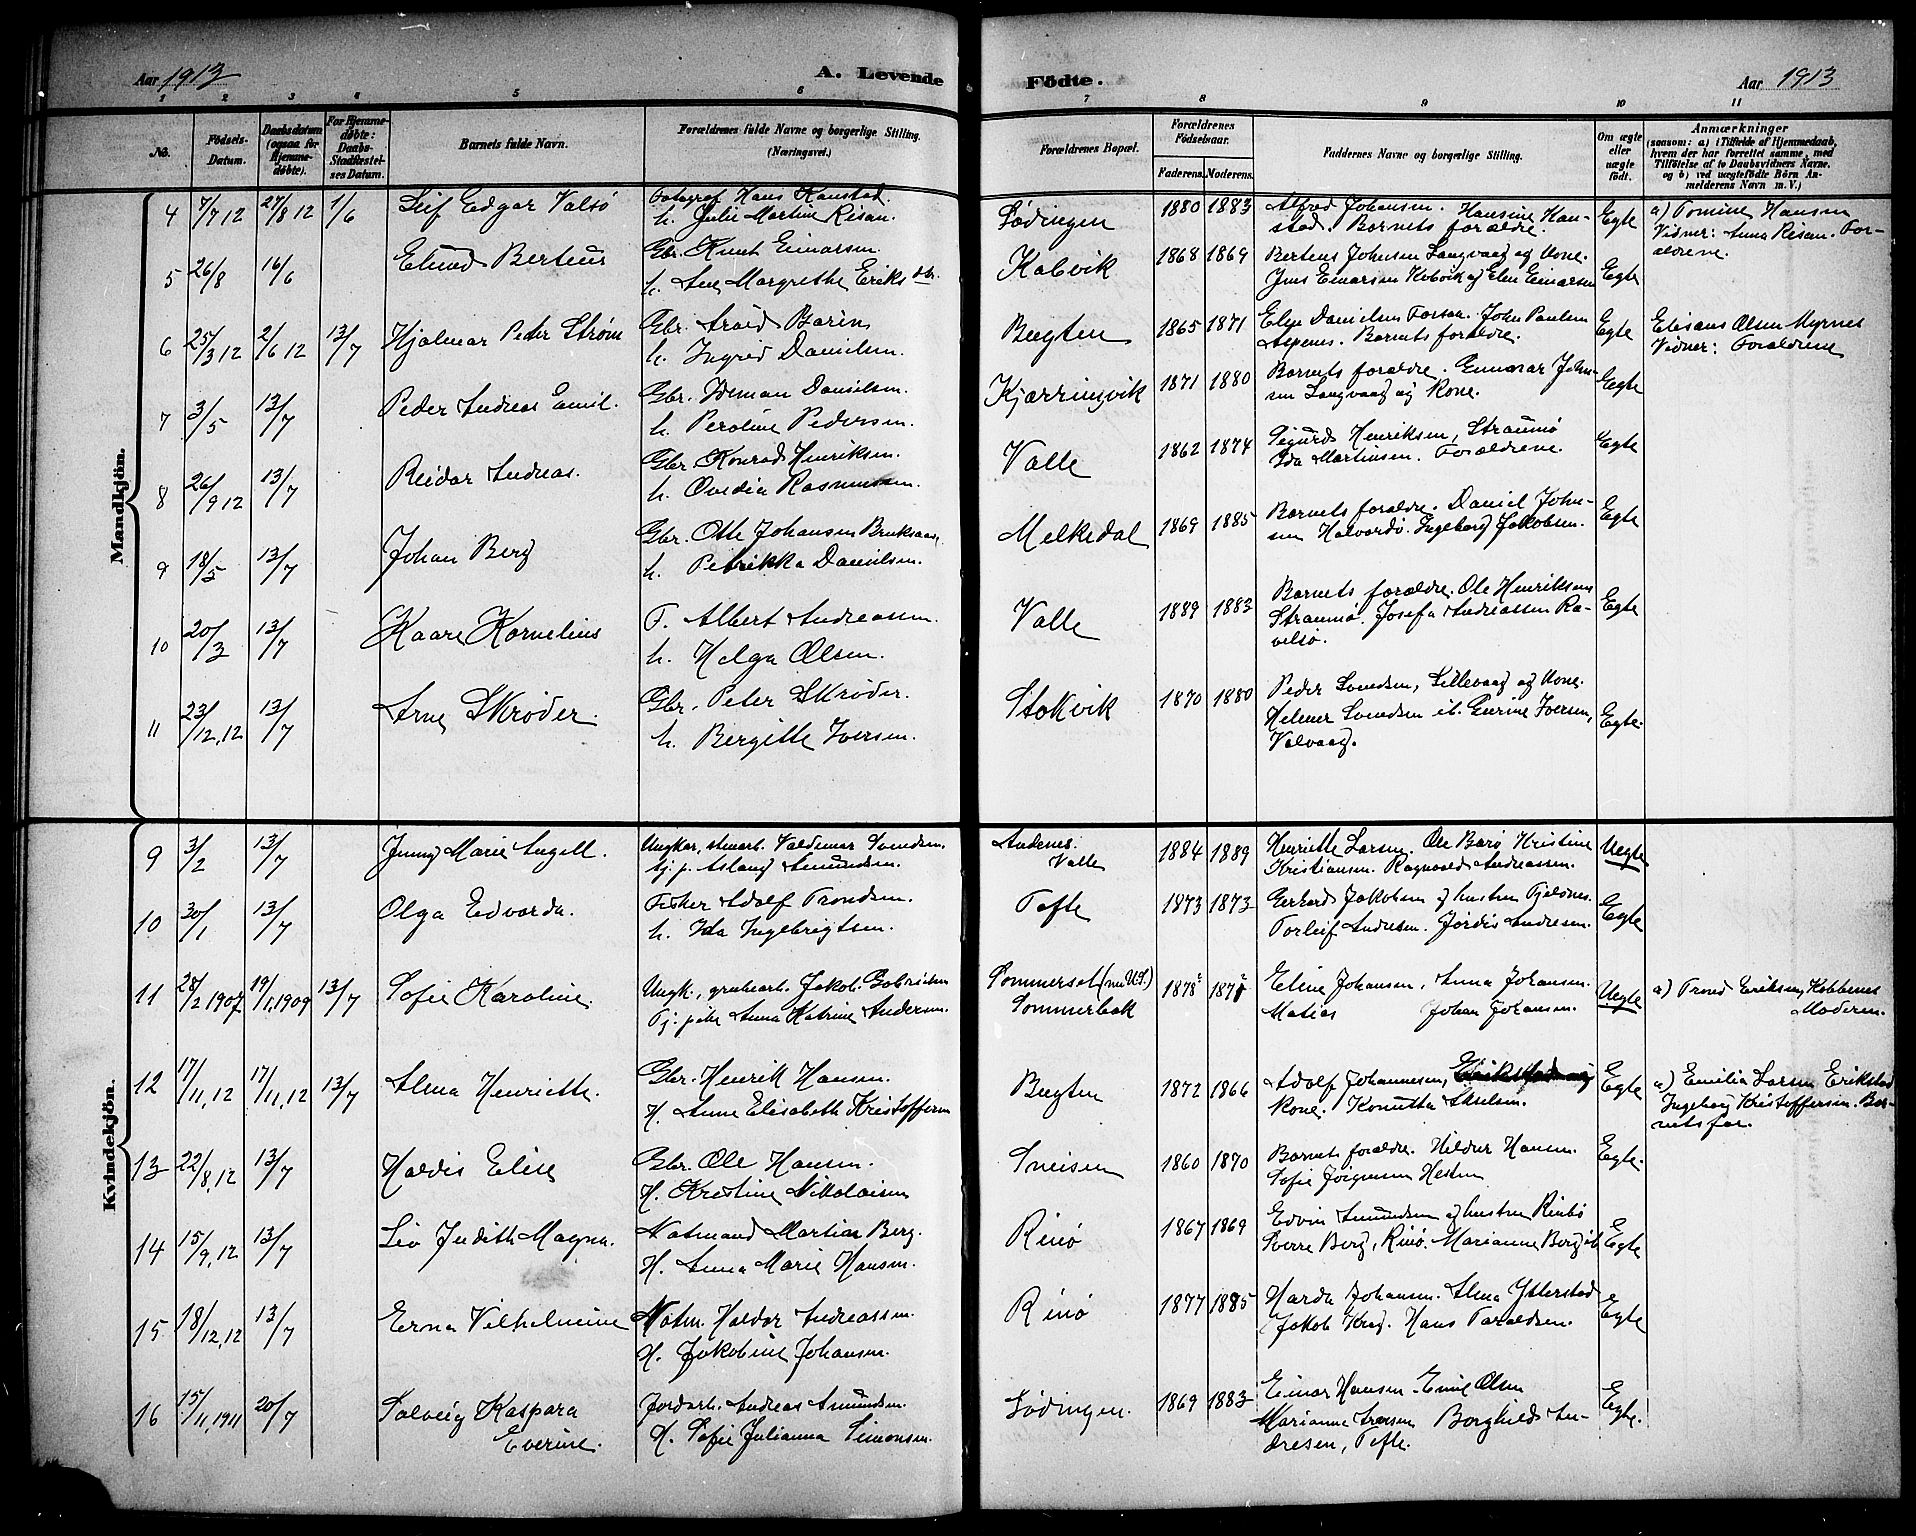 Aar 1913
A. Levende
Födte.
Aar 1913
1 2 3 4 5 6 7 8 9 10 11
No.
Födsels-
Datum.
Daabsdatum
(ogsaa for
Hjemme-
døbte).
For Hjemme-
døbte:
Daabs-
Stadfæstel-
ses Datum.
Barnets fulde Navn.
Forældrenes fulde Navne og borgerlige Stilling.
(Næringsvei.)
Forældrenes Bopæl.
Forældrenes
Födselsaar.
Faderens. Moderens.
Faddernes Navne og borgerlige Stilling.
Om ægte
eller
uægte
født.
Anmærkninger
(saasom: a) i Tilfælde af Hjemmedaab,
hvem der har forrettet samme, med
Tilföielse af to Daabsvidners Navne.
og b) ved uægtefödte Börn An-
melderens Navn m. V.)
Mandkjön.
4 7/7 12 27/8 12 1/6 Leif Edgar Valsø
Fotograf Hans Kanstad.
h. Julie Martine Risan.
Lødingen 1880 1883
Alfred Johansen. Hansine Kan-
stad. Barnets forældre.
Egte
a) Tomine Hansen
Vidner: Anna Risan. For-
ældrene.
5 26/8 16/6 Elund Berteus
Gbr. Knut Einarsen.
h. Ane Margrethe Eriksdtr.
Kobvik 1868 1869
Bertens Johnsen Langvaag og Kone.
Jens Einarsen Kobvik og Elen Einarsen
Egte
6 25/3 12 2/6 12 13/7 Hjalmar Peder Strøm
Gbr. Arvid Barin
h. Ingrid Danielsen.
Bugten 1865 1871
Elen Danielsen Forsaa. John Paulsen
Aspenes. Barnets forældre.
Egte
Elisæus Olsen Myrnes
Vidner: Forældrene
7 3/5 13/7 Peder Andreas Emil.
Gbr. Norman Danielsen.
h. Peroline Pedersen.
Kjærringvik 1871 1880
Barnets forældre. Gunnar John-
sen Langvaag og Kone.
Egte
8 26/9 12 13/7 Reidar Andreas.
Gbr. Konrad Henriksen.
h. Ovedia Rasmussen.
Valle 1862 1874
Sigurd Henriksen, Straumø
Ida Martinsen. Forældrene.
Egte
9 18/5 13/7 Johan Berg
Gbr. Otte Johansen Bruksaas,
h. Petrikka Danielsen.
Melkedal 1869 1885
Barnets forældre. Daniel John-
sen Halvardø. Ingeborg Jakobsen.
Egte
10 20/3 13/7 Kaare Kornelius
F. Albert Andreassen.
h. Helga Olsen.
Valle 1889 1883
Barnets forældre. Ole Henriksen
Straumø. Josefa Andreassen Ra-
velsø.
Egte
11 23/12,12 13/7 Arne Skrøder.
Gbr. Peter Skrøder.
h. Bergitte Iversen.
Stokvik 1870 1880
Peder Svendsen, Lillevaag og Kone.
Helmer Svendsen ib. Gurine Iversen,
Valvaag.
Egte.
Kvindekjön.
9 3/2 13/7 Jenny Marie Angell.
Ungkar, stenarb. Valdemar Svendsen.
tj.p. Aslaug Amundsen.
Andenes.
Valle 1884 1889
Henriette Larsen. Ole Barø Kristine
Kristiansen. Ragnvald Andreassen.
Uegte
10 30/1 13/7 Olga Edvarda.
Fisker Adolf Trondsen.
h. Ida Ingebrigtsen.
Tofte 1873 1873
Gerhard Jakobsen og hustru Fjeldnes.
Torleif Andresen. Jørdis Andresen.
Egte
11 28/2 1907 19/1,1909 13/7 Sofie Karoline.
Ungk., grubearb. Jakob Gabrielsen
Tj. pike Anna Katrine Andersen.
Sommerset (nu U.S.)
Sommerbak 1878 1871
Eline Johansen, Anna Johansen.
Matias Johan Johansen.
Uegte
a) Trond Eriksen, Kobbenes
Moderen.
12 17/11,12 17/11,12 13/7 Alma Henriette.
Gbr. Henrik Hansen.
H. Anne Elisabeth Kristoffersen
Bugten 1872 1866
Adolf Johannesen, Erikstad og
Kone. Konutta Akselsen.
Egte
a) Emilia Larsen Erikstad
Ingeborg Kristoffersen. Bar-
netsfar.
13 22/8,12 13/7 Haldis Elise
Gbr. Ole Hansen.
H. Kristine Nikolaisen
Sneisen 1860 1870
Barnets forældre. Hildur Hansen.
Sofie Jørgensen Hesten
Egte.
14 15/9,12 13/7 Liv Judith Magna.
Notmand Martin Berg.
H. Anna Marie Hansen.
Rinø 1867 1869
Edvin Amundsen og hustru Rinbø
Sverre Berg, Rinø. Marianne Berg ib
Egte
15 18/12,12 13/7 Erna Vilhelmine
Notm. Haldor Andreassen
H. Jakobine Johansen.
Rinø 1877 1885
Harda Johansen. Alma Ytterstad
Jakob Krog. Hans Taraldsen.
Egte
16 15/11,1911 20/7 Solveig Kaspara
Everine.
Jordarb. Andreas Amundsen.
H. Sofie Julianna Simonsen.
Lødingen. 1869 1883
Einar Hansen. Emil Olsen
Marianne Larsen Borghild An-
dresen, Tofte.
Egte.